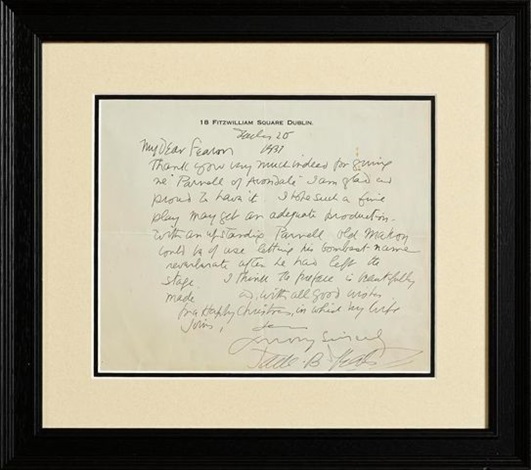 18 FITZWILLIAM SQUARE DUBLIN.
20
1937
My Dear Fearon
Thank you very much indeed for giving
me "Parnell of Avondale" I am glad and
proud to have it. I hope such a fine
play may get an adequate production.
With an upstanding Parnell old
could be of use letting his bombast name
reverberate after he had left the
stage. I think the Preface is beautifully
made and with all good wishes
for a Happy Christmas, in which my wife
joins,
I am
yours sincerely
Jack. B. Yeats